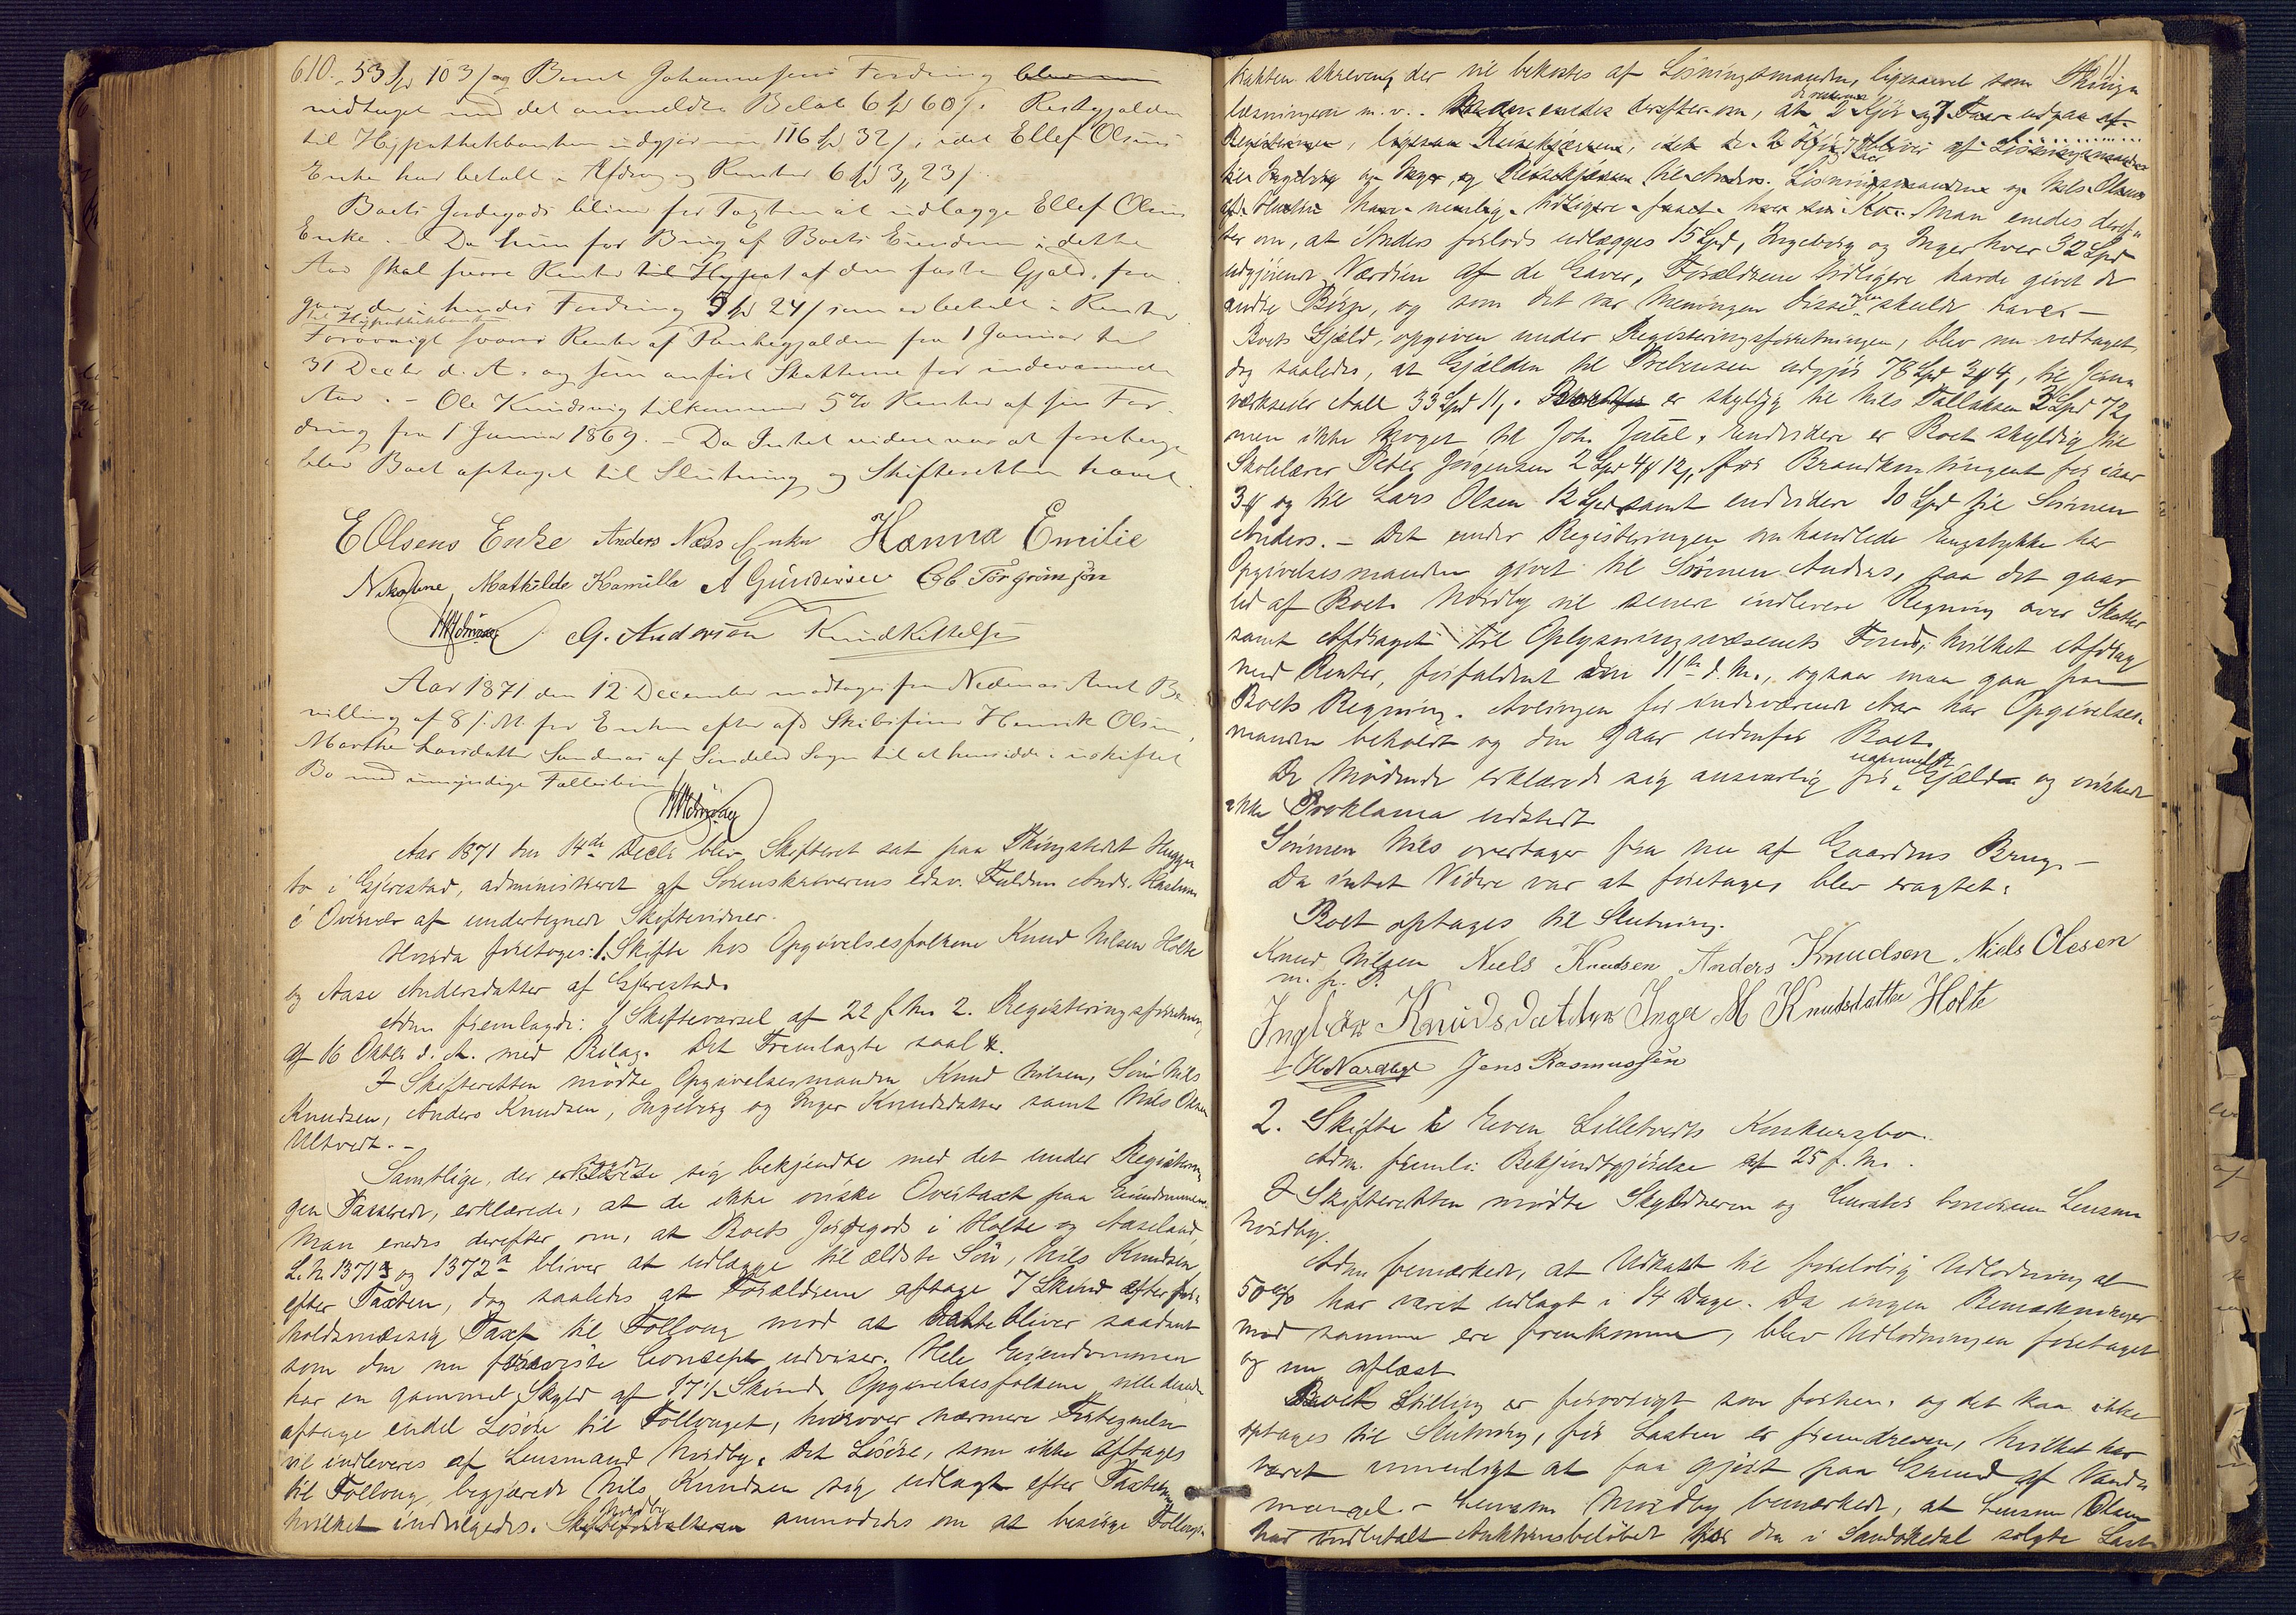 610. 53 Spd 103 s og Bernt Johannesens Fordring blev nu
vedtaget med det anmeldte Beløb 6 Spd 60 s. Restgjælden
til Hypothekbanken udgjør nu 116 Spd 32 s, idet Ellef Olsens
Enke har betalt i Afdrag og Renter 6 Spd 3, 23 s.
Boets Jordegods bliver for Taxten at udlægge Ellef Olsens
Enke. Da hun for Brug af Boets Eiendom i dette
Aar skal svare Renter til Hypot af den faste Gjæld, fra
gaar der i hendes Fordring 5 Spd 24 s som er betalt i Renter
til Hypothekbanken
Forøvrigt svares Renter af Panthegjælden fra 1 Januar til
31 Decbr d. A. og som anført Skatterne for indeværende
Aar. - Ole Knudsvig tilkommer 5% Renter af sin For-
dring fra 1 Januar 1869. - Da Intet videre var at foretage
blev Boet optaget til Slutning og Skifteretten hævet.
E Olsens Enke Anders Næss Enke Hanna Emilie
Nikoline, Mathilde Kamilla A Gundersen Torgrimsen
G. Andersen Knud Kittelsen
Aar 1871 den 12 December modtages fra Nedenæs Amt Be-
villing af 8 f. M. for Enken efter afd Skibsfører Henrik Olsen,
Marthe Larsdatter Sandnæs af Søndeled Sogn til at hensidde i uskiftet
Bo med umyndige Fællesbørn
Aar 1871 den 14de Decbr blev Skifteret sat paa Thingstedet Huggen
to i Gjerestad, administreret af Sorenskriverens edsv. Fuldm Andr.
i Overvær af undertegnede Skiftevidner.
Hvorda foretoges: 1. Skifte hos Opgivelsesfolkene Knud Nilsen Holte
og Aase Andersdatter af Gjerestad.
Adm fremlagde: 1 Skiftevarsel af 22 f. M. 2. Registreringsforretning
af 16 Oktbr d. A. med Bilag. Det Fremlagte saal.
I Skifteretten mødte Opgivelsesmanden Knud Nilsen, Søn Nils
Knudsen, Anders Knudsen, Ingeborg og Inger Knudsdatter samt Nils Olsen
Ultvedt. -
Samtlige, der erklærede sig bekjendte med det under Registerin-
gen Passerede, erklærede, at de ikke ønske Overtaxt paa Eiendommene.
Man enedes derefter om, at Boets Jordegods i Holte og Aaseland,
L. N. 1371a og 1372a bliver at udlægge til ældste Søn, Nils Knudsen
efter Taxten, dog saaledes at Forældrene aftage 7 Skind efter for-
holdsmæssig Taxt til Follong mod at dette bliver saadant
som den nu foreviste Concept udviser. Hele Eiendommen
har en gammel Skyld af 17½ Skind. Opgivelsesfolkene ville desuden
aftage endel Løsøre til Follonget, hvorover nærmere Fortegnelse
vil indleveres af Lensmand Nordby. Det Løsøre, som ikke aftages
til Follong, begjærede Nils Knudsen sig udlagt efter Taxten,
Nordby
hvilket indvilgedes. Skifteforvalteren anmodedes om at besørge Follongs-
611.
trakten skreven, der vil bekostes af Løsningsmanden, ligesaavel som Thing-
læsningen m. v. Man enedes derefter om, at 2 Kjør og 7 Faar udgaa af
Registeringen, ligesom Reisekjærren, idet de 2 Kjør bliver af Løsningsmanden
til Ingeborg og Inger, og Reisekjærren til Anders. Løsningsmanden og Nils Olsen
Ultvedt have nemlig tidligere faaet hver sin Ko. Man enedes deref-
ter om, at Anders forlods udlægges 15 Spd, Ingeborg og Inger hver 32 Spd
udgjørende Værdien af de Gaver, Forældrene tidligere havde givet de
andre Børn, og som det var Meningen disse skulde have. -
Boets Gjæld, opgiven under Registeringsforretningen, blev nu vedtaget,
dog saaledes, at Gjælden til Prebensen udgjør 78 Spd 3 ort 4 s, til Jern-
værkseier Aall 33 Spd 11 s. Boet er skyldig til Nils Tallaksen 2 Spd 72 s
men ikke Noget til Joh. Jutel. Endvidere er Boet skyldig til
Skolelærer Peder Jørgensen 2 Spd 4 ort 12 s, for Brandkontingent for iaar
3 ort og til Lars Olsen 12 Spd samt endvidere 10 Spd til Sønnen
Anders. - Det under Registeringen omhandlede Engstykke har
Opgivelsesmanden givet til Sønnen Anders, saa det gaar
ud af Boet. Nordby vil senere indlevere Regning over Skatter
samt Afdraget til Oplysningsvæsenets Fond; hvilket Afdrag
med Renter, forfaldent den 11te d. M., ogsaa maa gaa paa
Boets Regning. Avlingen for indeværende Aar har Opgivelses-
manden beholdt og den gaar udenfor Boet.
uanmeldt
De Mødende erklærede sig ansvarlig for Gjælden og ønskede
ikke Proklama udstedt
Sønnen Nils overtager fra nu af Gaardens Brug. -
Da intet Videre var at foretage, blev eragtet:
Boet optages til Slutning.
Knud Nilsen Niels Knudsen Anders Knudsen Niels Olesen
m. p. P.
Ingbor Knudsdatter Inger M Knudsdatter Holte
H Nordbye Jens Rasmussen
2. Skifte i Even Lilletvedts Konkursbo.
Adm. freml: Bekjendtgjørelse af 25 f. M.
I Skifteretten mødte Skyldneren og Curator bonorum Lensm
Nordby.
Adm bemærkede, at Udkast til foreløbig Udlodning al
50% har været udlagt i 14 Dage. Da ingen Bemærkninger
mod samme ere fremkomne, blev Udlodningen foretaget
og nu aflæst
Boets Stilling er forøvrigt som forhen, og det kan ikke
optages til Slutning, før Lasten er fremdreven, hvilket har
været umuligt at faa gjort paa Grund af Vand-
mangel. - Lensm Nordby bemærkede, at Lensm Olsen
har indbetalt Auktionsbeløbet for den i Sandøkedal solgte Last